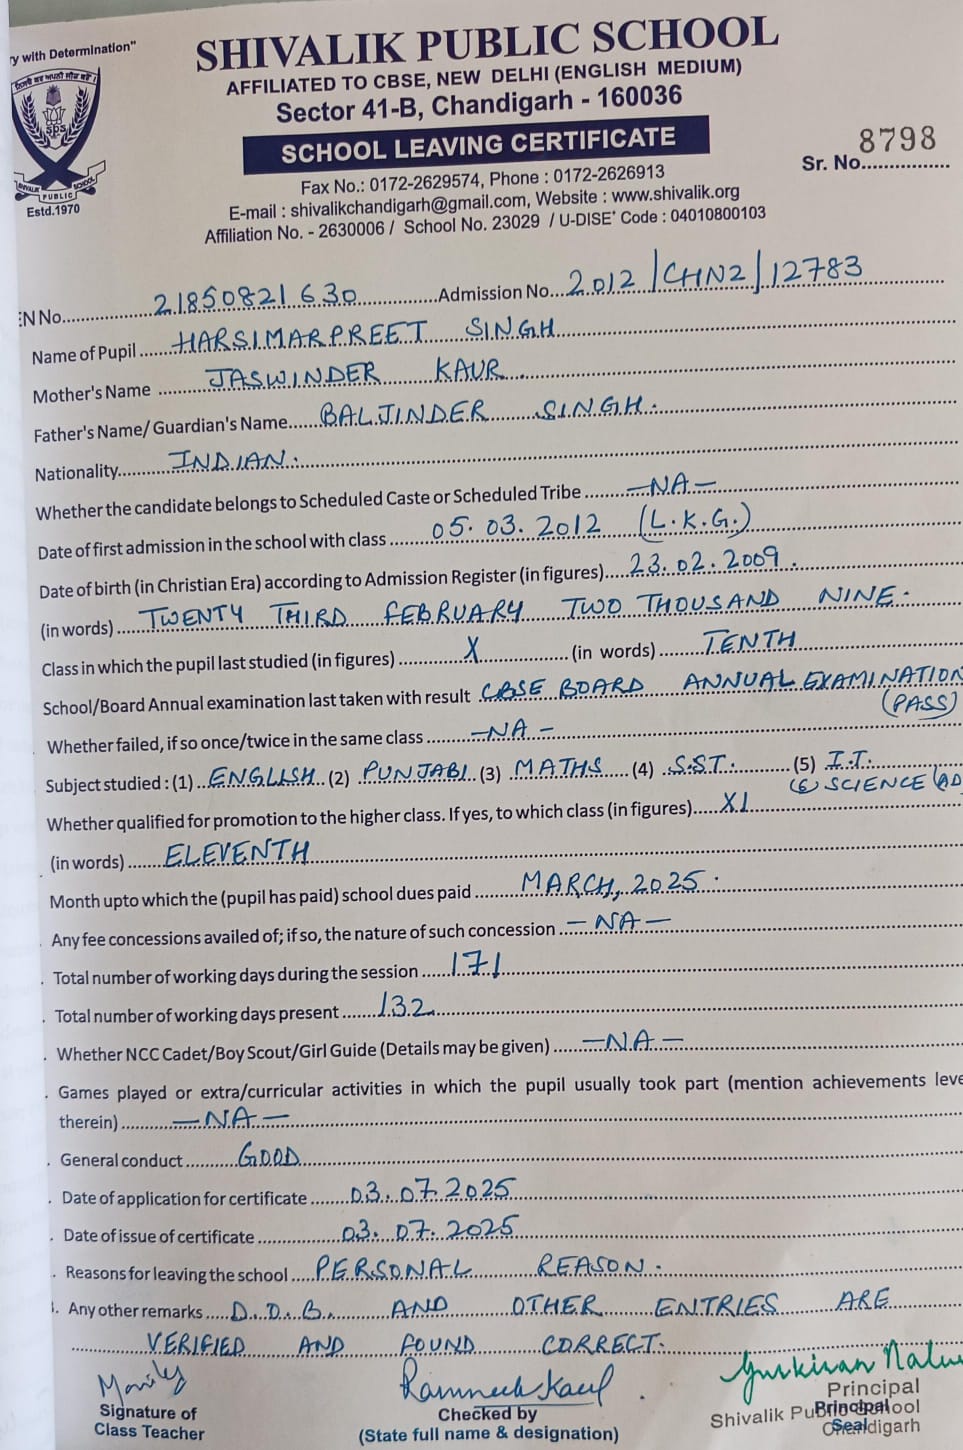 y with Determination"
SHIVALIK PUBLIC SCHOOL
AFFILIATED TO CBSE, NEW DELHI (ENGLISH MEDIUM)
Sector 41-B, Chandigarh - 160036
SCHOOL LEAVING CERTIFICATE
8798
Sr. No................
sps
SHIVALIK PUBLIC SCHOOL
Estd.1970
Fax No.: 0172-2629574, Phone : 0172-2626913
E-mail : shivalikchandigarh@gmail.com, Website : www.shivalik.org
Affiliation No. - 2630006 / School No. 23029 / U-DISE+ Code : 04010800103
EN No. 21850821630 Admission No. 2012/CHN2/12783
Name of Pupil HARSIMARPREET SINGH
Mother's Name JASWINDER KAUR
Father's Name/ Guardian's Name BALJINDER SINGH.
Nationality INDIAN.
Whether the candidate belongs to Scheduled Caste or Scheduled Tribe -NA-
Date of first admission in the school with class 05.03.2012 (L.K.G.)
Date of birth (in Christian Era) according to Admission Register (in figures) 23.02.2009.
(in words) TWENTY THIRD FEBRUARY TWO THOUSAND NINE.
Class in which the pupil last studied (in figures) X (in words) TENTH
School/Board Annual examination last taken with result CBSE BOARD ANNUAL EXAMINATION
(PASS)
Whether failed, if so once/twice in the same class -NA-
Subject studied : (1) ENGLISH (2) PUNJABI (3) MATHS (4) S.ST. (5) I.T.
(6) SCIENCE (AD
Whether qualified for promotion to the higher class. If yes, to which class (in figures) XI
(in words) ELEVENTH
Month upto which the (pupil has paid) school dues paid MARCH, 2025.
Any fee concessions availed of; if so, the nature of such concession -NA-
Total number of working days during the session 171
Total number of working days present 132
Whether NCC Cadet/Boy Scout/Girl Guide (Details may be given) -NA-
Games played or extra/curricular activities in which the pupil usually took part (mention achievements leve
therein) -NA-
General conduct GOOD
Date of application for certificate 03.07.2025
Date of issue of certificate 03.07.2025
Reasons for leaving the school PERSONAL REASON.
Any other remarks D.O.B. AND OTHER ENTRIES ARE
VERIFIED AND FOUND CORRECT.
Ramneek Kaur
Signature of
Class Teacher
Checked by
(State full name & designation)
Gurkiran
Principal
Shivalik Public School
Chandigarh
Principal
Seal